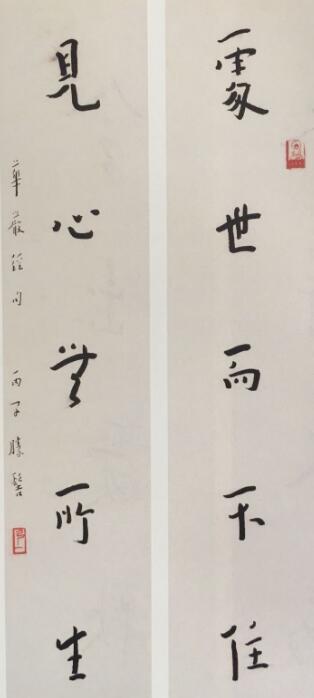 處世而不住
見心無所生
華嚴經句 丙子勝髻